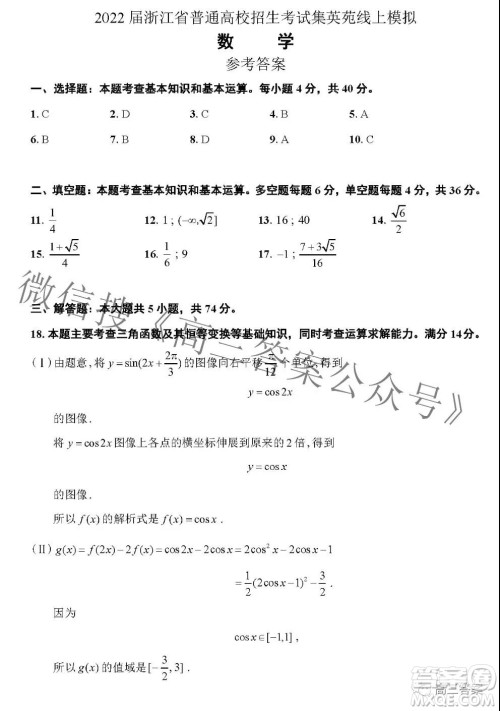 2022 届浙江省普通高校招生考试集英苑线上模拟
数 学
参考答案
一、选择题：本题考查基本知识和基本运算。每小题 4 分，共 40 分。
1. C 2. D 3. C 4. B 5. A
6. B 7. B 8. D 9. A 10. C
二、填空题：本题考查基本知识和基本运算。多空题每题 6 分，单空题每题 4 分，共 36 分。
11. 1/4 12. 1 ; (-∞,√2] 13. 16 ; 40 14. √6/2
15. (1+√5)/4 16. 1/6 ; 9 17. -1 ; (7+3√5)/16
三、解答题：本大题共 5 小题，共 74 分。
18. 本题主要考查三角函数及其恒等变换等基础知识，同时考查运算求解能力。满分 14 分。
(Ⅰ) 由题意，将 y=sin(2x+2π/3) 的图像向右平移 π/12 个单位，得到
y=cos2x
的图像．
将 y=cos2x 图像上各点的横坐标伸展到原来的 2 倍，得到
y=cosx
的图像．
所以 f(x) 的解析式是 f(x)=cosx．
(Ⅱ) g(x)=f(2x)-2f(x)=cos2x-2cosx=2cos²x-2cosx-1
=1/2(2cosx-1)²-3/2．
因为
cosx∈[-1,1]，
所以 g(x) 的值域是 [-3/2,3]．
微信搜《高三答案公众号》
高三答案